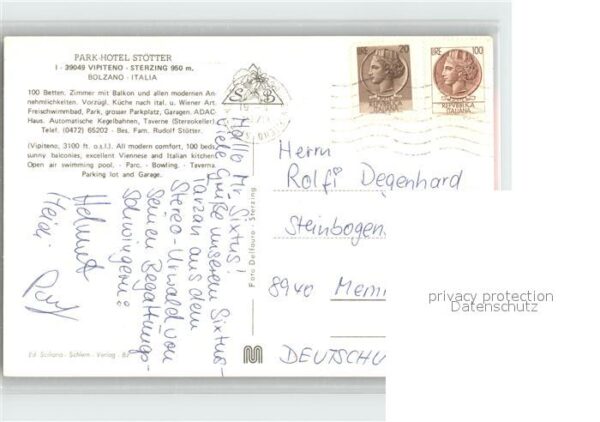 PARK-HOTEL STÖTTER
I - 39049 VIPITENO - STERZING 950 m.
BOLZANO - ITALIA
100 Betten. Zimmer mit Balkon und allen modernen An-
nehmlichkeiten. Vorzügl. Küche nach ital. u. Wiener Art.
Freischwimmbad, Park, grosser Parkplatz, Garagen. ADAC-
Haus. Automatische Kegelbahnen, Taverne (Stereokeller).
Telef. (0472) 65202 - Bes. Fam. Rudolf Stötter.
(Vipiteno, 3100 ft. o.s.l.). All modern comfort, 100 beds
sunny balconies, excellent Viennese and Italian kitchen.
Open air swimming pool. - Parc. - Bowling. - Taverna.
Parking lot and Garage.
Hallo Mr. Sixtus!
Viele Grüße unserem Sixtus-
Tarzan aus dem
Stereo-Urwald von
seinen Begattungs-
schwingern?
Helmut
Heidi
Foto Delfauro - Sterzing
LIRE 20
LIRE 100
REPVBBLICA
ITALIANA
Herrn
Rolfi Degenhard
Steinbogen
8940 Memm
DEUTSCHL
privacy protection
Datenschutz